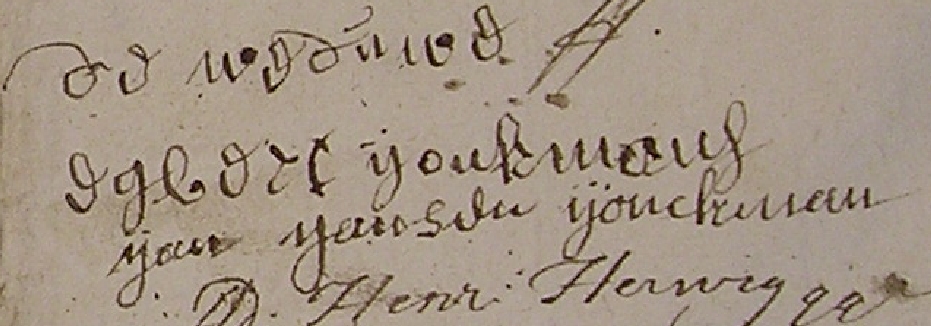 de weduwe
egbert yonkmans
yan yansen yonckman
D. Henr: Herwig